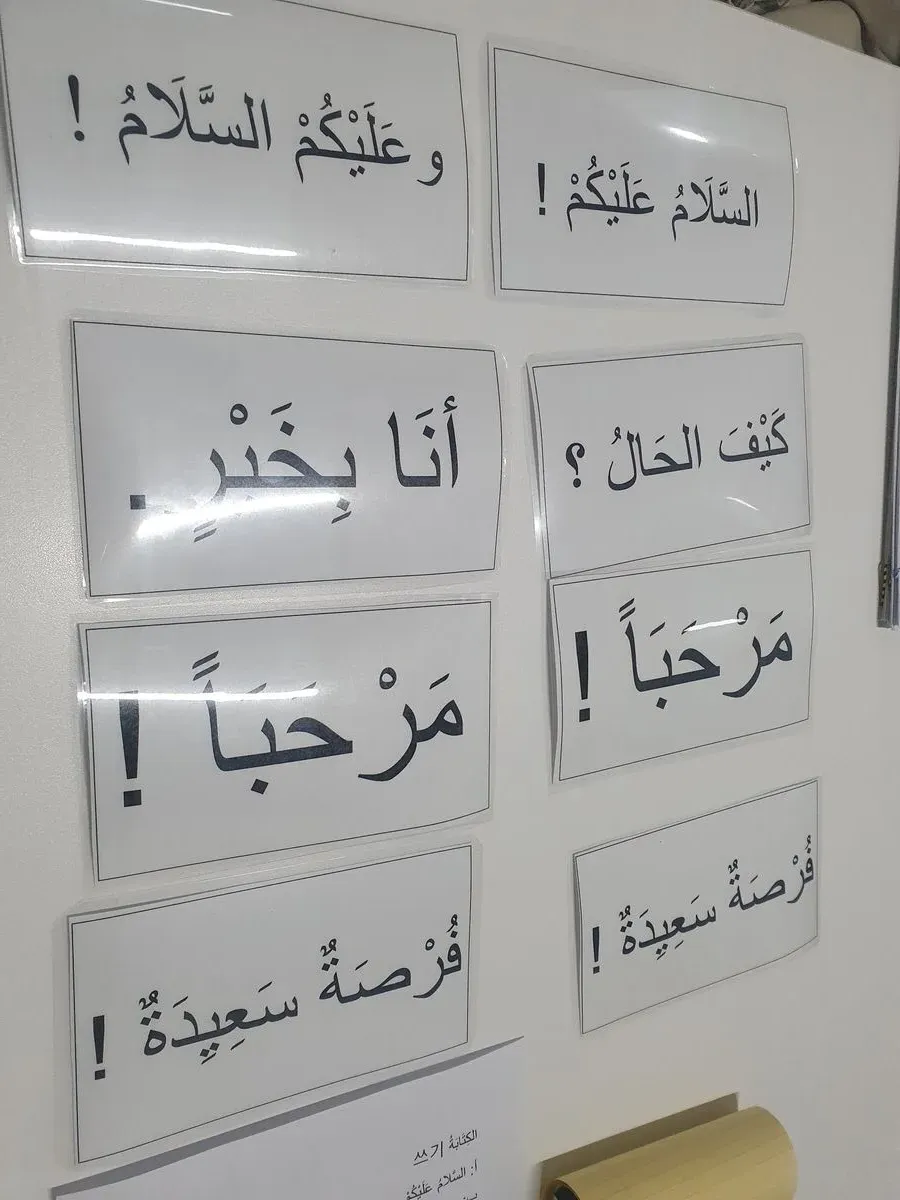 السَّلَامُ عَلَيْكُمْ !
و عَلَيْكُمْ السَّلَامُ !
كَيْفَ الحَالُ ؟
أنَا بِخَيْرٍ .
مَرْحَبَاً !
مَرْحَبَاً !
فُرْصَةٌ سَعِيِدَةٌ !
فُرْصَةٌ سَعِيِدَةٌ !
الكِتَابَةُ
أ: السَّلَامُ عَلَيْكُمْ